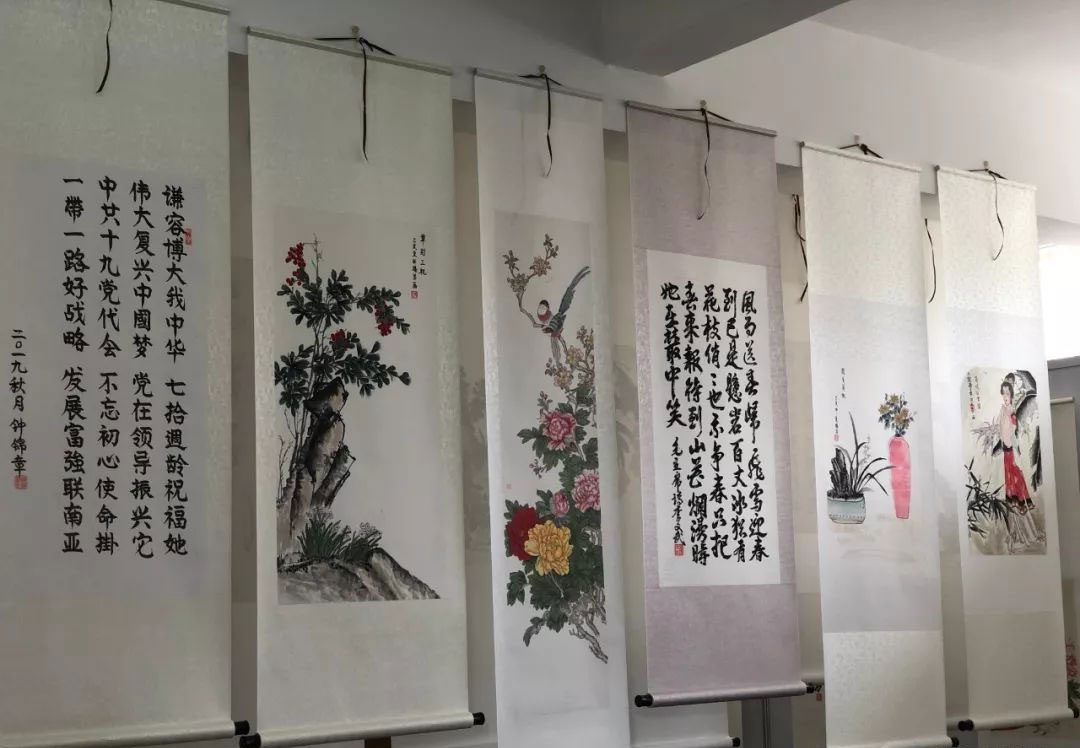 谦容博大我中华 七拾週龄祝福她
伟大复兴中國梦 党在领导振兴它
中共十九党代会 不忘初心使命掛
一帶一路好战略 发展富強联南亚
二〇一九秋月 钟锦章
風雨送春歸飛雪迎春
到已是懸岩百丈冰猶有
花枝俏〻也不争春只把
春来報待到山花爛漫時
她在叢中笑 毛主席詩